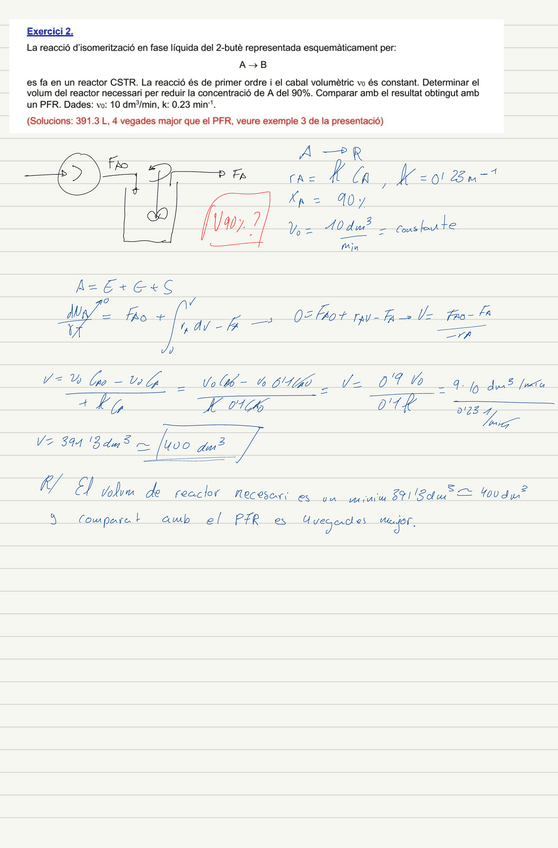 Exercici 2.
La reacció d'isomerització en fase líquida del 2-butè representada esquemàticament per:
A → B
es fa en un reactor CSTR. La reacció és de primer ordre i el cabal volumètric v₀ és constant. Determinar el
volum del reactor necessari per reduir la concentració de A del 90%. Comparar amb el resultat obtingut amb
un PFR. Dades: v₀: 10 dm³/min, k: 0.23 min⁻¹.
(Solucions: 391.3 L, 4 vegades major que el PFR, veure exemple 3 de la presentació)
A → R
F_A0
F_A
r_A = k C_A , k = 0'23 m⁻¹
X_A = 90%
V90% ?
V₀ = 10 dm³/min = constante
A = E + G + S
dN_A/dt → 0 = F_A0 + ∫_{V₀}^{V} r_A dV − F_A → 0 = F_A0 + r_A V − F_A → V = (F_A0 − F_A)/(−r_A)
V = (v₀ C_A0 − v₀ C_A)/(+ k C_A) = (v₀ C_A0 − v₀ 0'1 C_A0)/(k 0'1 C_A0) = V = (0'9 V₀)/(0'1 k) = (9·10 dm³/min)/(0'23 1/min)
V = 391'3 dm³ ≃ 400 dm³
R/ El volum de reactor necesari es un minim 391'3 dm³ ≃ 400 dm³
y comparat amb el PFR es 4 vegades major.